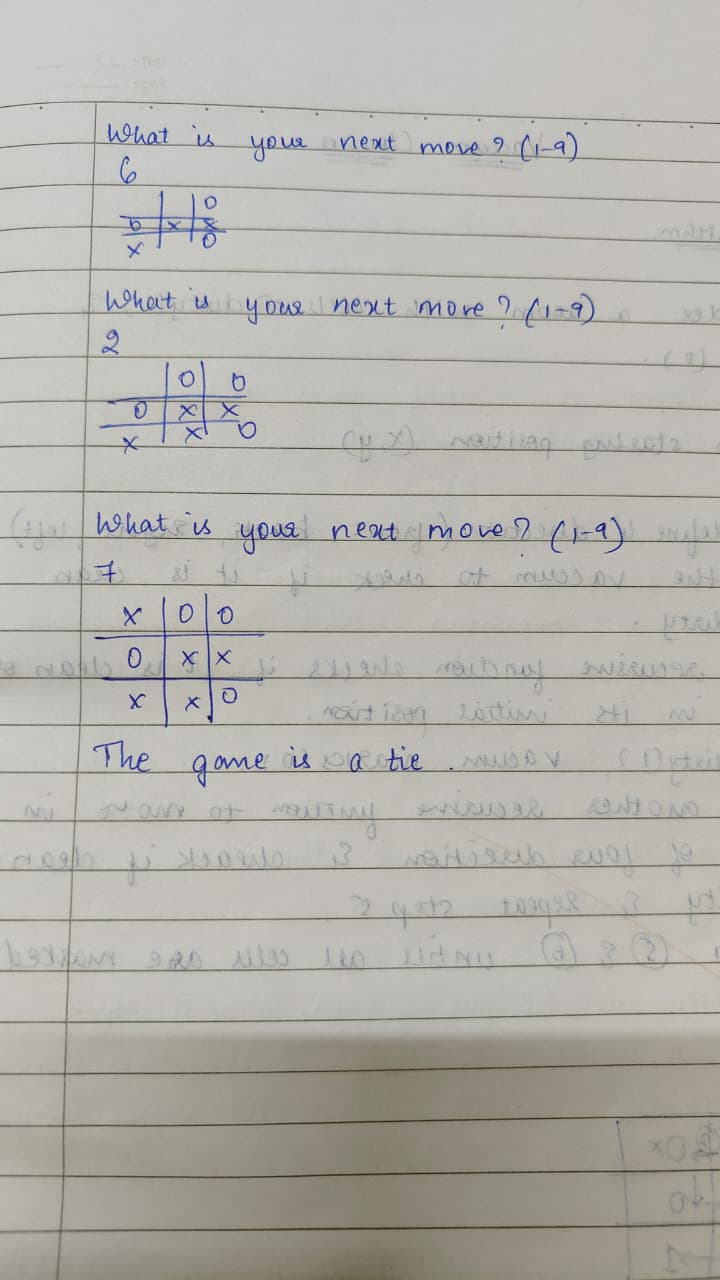 What is your next move? (1-9)
6
| | O
O | X | X
X | | O
What is your next move? (1-9)
2
| O | O
O | X | X
X | X | O
What is your next move? (1-9)
7
X | O | O
O | X | X
X | X | O
The game is a tie.